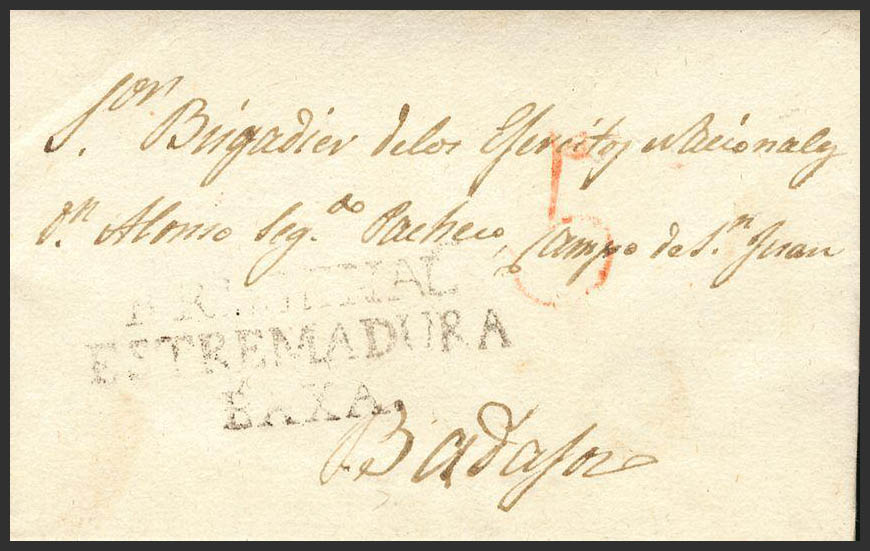 S.or Brigadier delos Egercitos Nacionales
D.n Alonso Seg.do Pacheco Campo de S.n Juan
5
ESTREMADURA
BAXA.
Badajoz